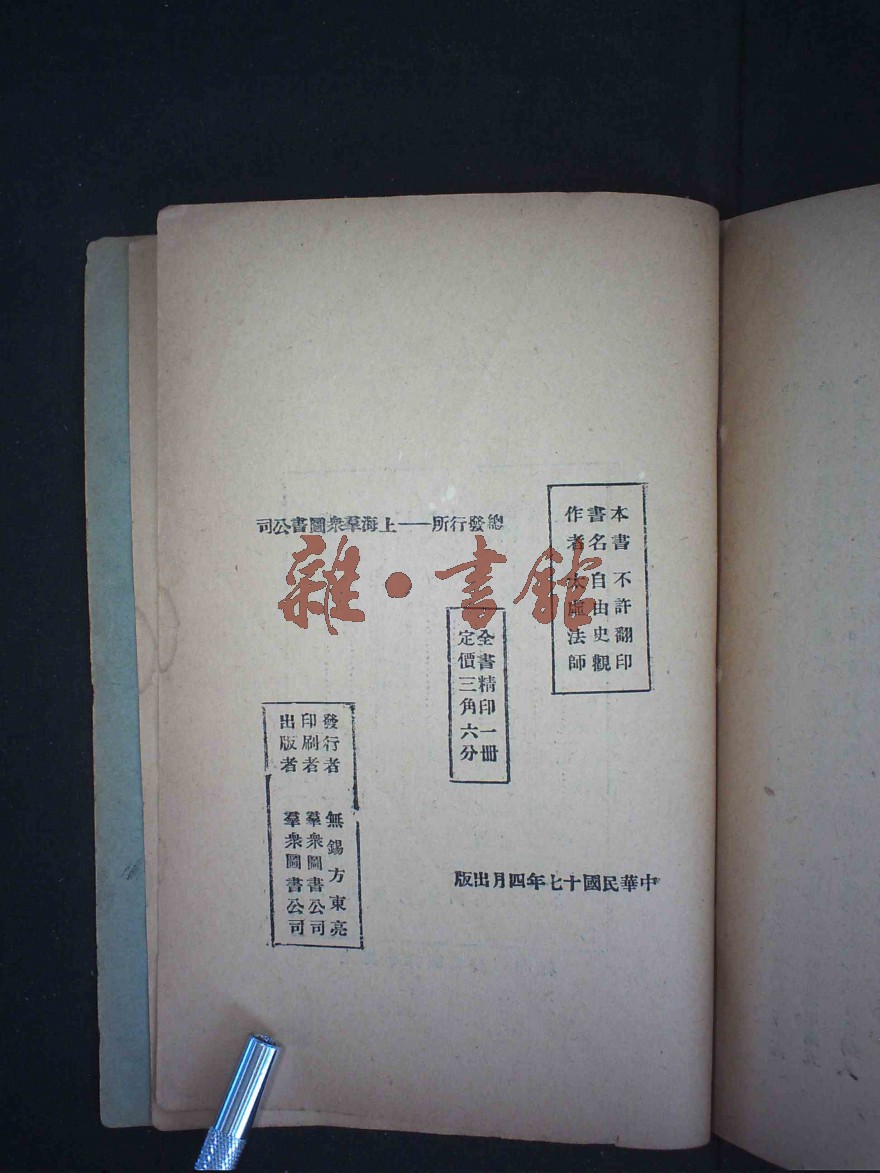 本書 不許翻印
書名 自由史觀
作者 太虛法師
總發行所——上海羣衆圖書公司
全書精印一册
定價三角六分
發行者 無錫方東亮
印刷者 羣衆圖書公司
出版者 羣衆圖書公司
中華民國十七年四月出版
雜·書館